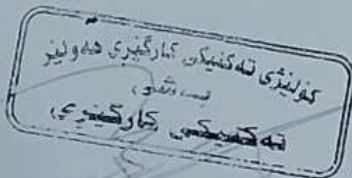 کۆلێژی تەکنیکی کارگێڕی هەولێر
بەشی
تەکنیکی کارگێڕی